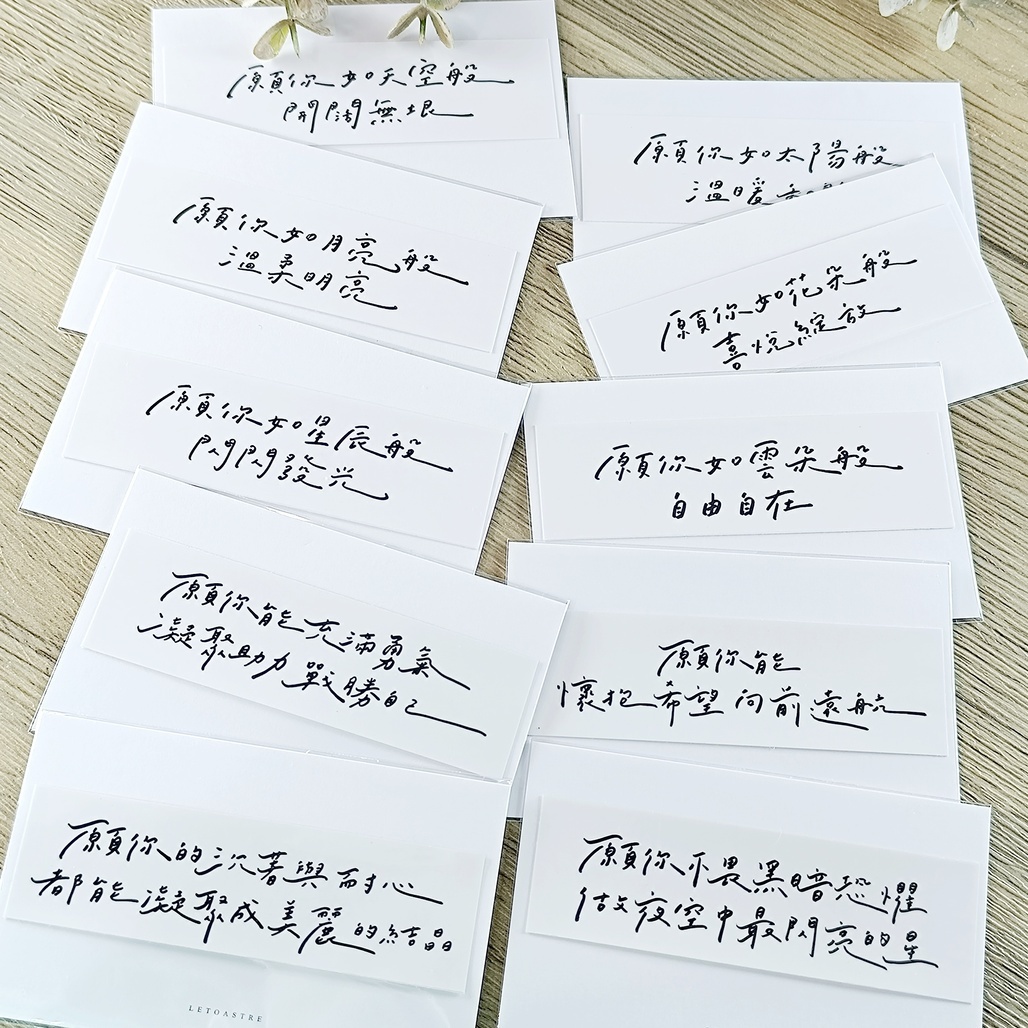 願你如天空般
開闊無垠
願你如太陽般
溫暖
願你如月亮般
溫柔明亮
願你如花朵般
喜悅綻放
願你如星辰般
閃閃發光
願你如雲朵般
自由自在
願你能充滿勇氣
凝聚助力戰勝自己
願你能
懷抱希望向前遠航
願你的沉著與耐心
都能凝聚成美麗的結晶
願你不畏黑暗恐懼
做夜空中最閃亮的星
LETOASTRE